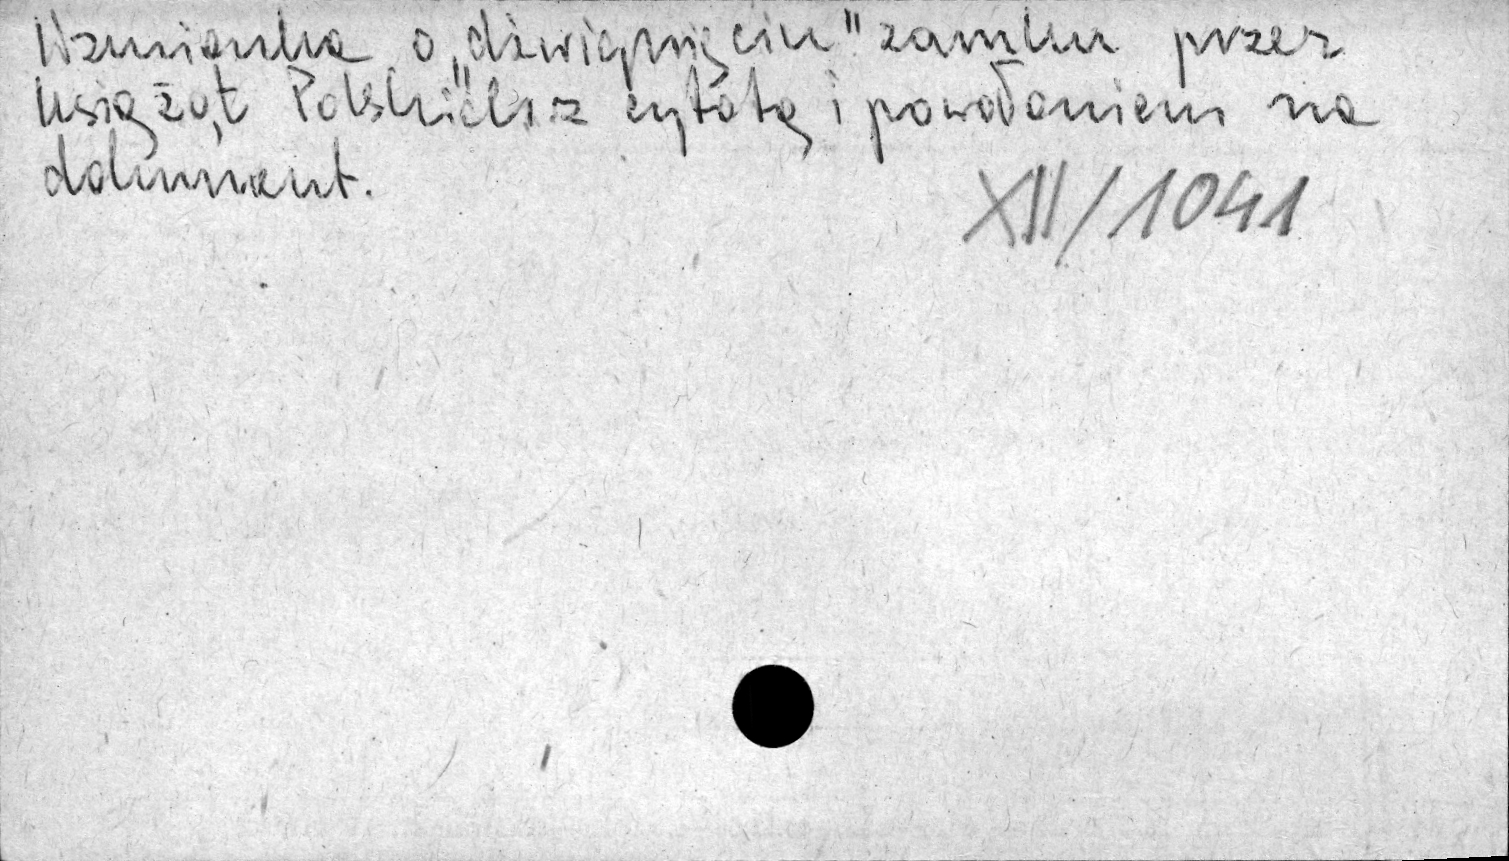 Wzmianka o „dźwignięciu" zamku przez
książąt Polskich" z cytatą i powołaniem na
dokument.
XII/1041